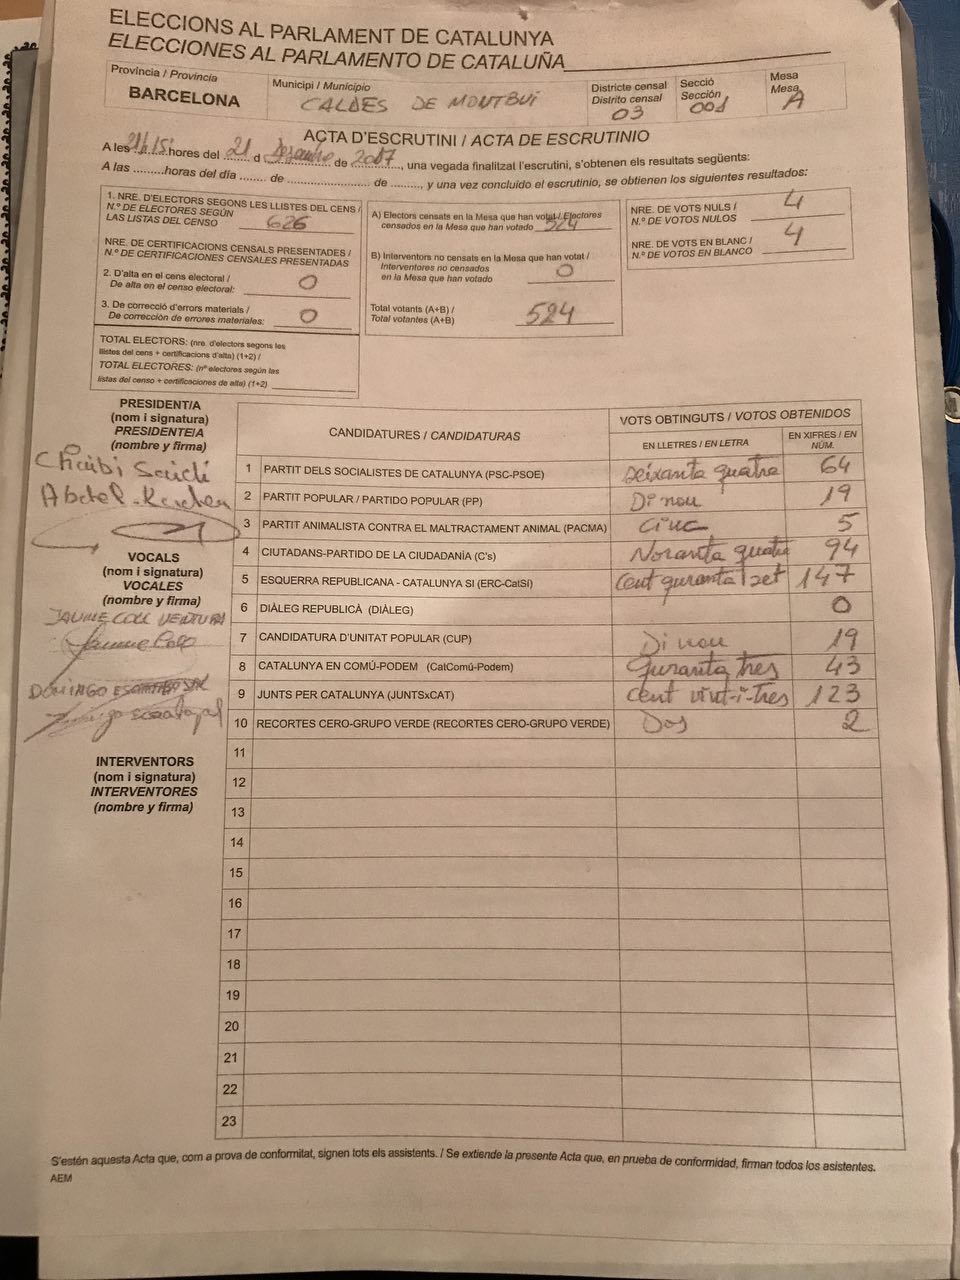 ELECCIONS AL PARLAMENT DE CATALUNYA
ELECCIONES AL PARLAMENTO DE CATALUÑA
Provincia / Provincia
BARCELONA
Municipi / Municipio
CALDES DE MONTBUÏ
Districte censal
Distrito censal
03
Secció
Sección
001
Mesa
Mesa
A
ACTA D'ESCRUTINI / ACTA DE ESCRUTINIO
A les 21h15' hores del 21 d Desembre de 2017, una vegada finalitzat l'escrutini, s'obtenen els resultats següents:
A las .........horas del día ........ de ........................ de ........, y una vez concluido el escrutinio, se obtienen los siguientes resultados:
1. NRE. D'ELECTORS SEGONS LES LLISTES DEL CENS /
N.º DE ELECTORES SEGÚN
LAS LISTAS DEL CENSO 626
NRE. DE CERTIFICACIONS CENSALS PRESENTADES /
N.º DE CERTIFICACIONES CENSALES PRESENTADAS
2. D'alta en el cens electoral /
De alta en el censo electoral: 0
3. De correcció d'errors materials /
De corrección de errores materiales: 0
TOTAL ELECTORS: (nre. d'electors segons les
llistes del cens + certificacions d'alta) (1+2) /
TOTAL ELECTORES: (nº electores según las
listas del censo + certificaciones de alta) (1+2)
A) Electors censats en la Mesa que han votat / Electores
censados en la Mesa que han votado 524
B) Interventors no censats en la Mesa que han votat /
Interventores no censados
en la Mesa que han votado 0
Total votants (A+B) /
Total votantes (A+B) 524
NRE. DE VOTS NULS /
N.º DE VOTOS NULOS 4
NRE. DE VOTS EN BLANC /
N.º DE VOTOS EN BLANCO 4
PRESIDENT/A
(nom i signatura)
PRESIDENTE/A
(nombre y firma)
Chaibi Saidi
VOCALS
(nom i signatura)
VOCALES
(nombre y firma)
JAUME COLL VENTURA
Jaume Coll
DOMINGO
INTERVENTORS
(nom i signatura)
INTERVENTORES
(nombre y firma)
CANDIDATURES / CANDIDATURAS
VOTS OBTINGUTS / VOTOS OBTENIDOS
EN LLETRES / EN LETRA
EN XIFRES / EN NÚM.
1 PARTIT DELS SOCIALISTES DE CATALUNYA (PSC-PSOE) Seixanta quatre 64
2 PARTIT POPULAR / PARTIDO POPULAR (PP) Di nou 19
3 PARTIT ANIMALISTA CONTRA EL MALTRACTAMENT ANIMAL (PACMA) cinc 5
4 CIUTADANS-PARTIDO DE LA CIUDADANÍA (C's) Noranta quatre 94
5 ESQUERRA REPUBLICANA - CATALUNYA SI (ERC-CatSí) Cent quranta set 147
6 DIÀLEG REPUBLICÀ (DIÀLEG) 0
7 CANDIDATURA D'UNITAT POPULAR (CUP) Di nou 19
8 CATALUNYA EN COMÚ-PODEM (CatComú-Podem) Quranta tres 43
9 JUNTS PER CATALUNYA (JUNTSxCAT) Cent vint-i-tres 123
10 RECORTES CERO-GRUPO VERDE (RECORTES CERO-GRUPO VERDE) Dos 2
11
12
13
14
15
16
17
18
19
20
21
22
23
S'estén aquesta Acta que, com a prova de conformitat, signen tots els assistents. / Se extiende la presente Acta que, en prueba de conformidad, firman todos los asistentes.
AEM